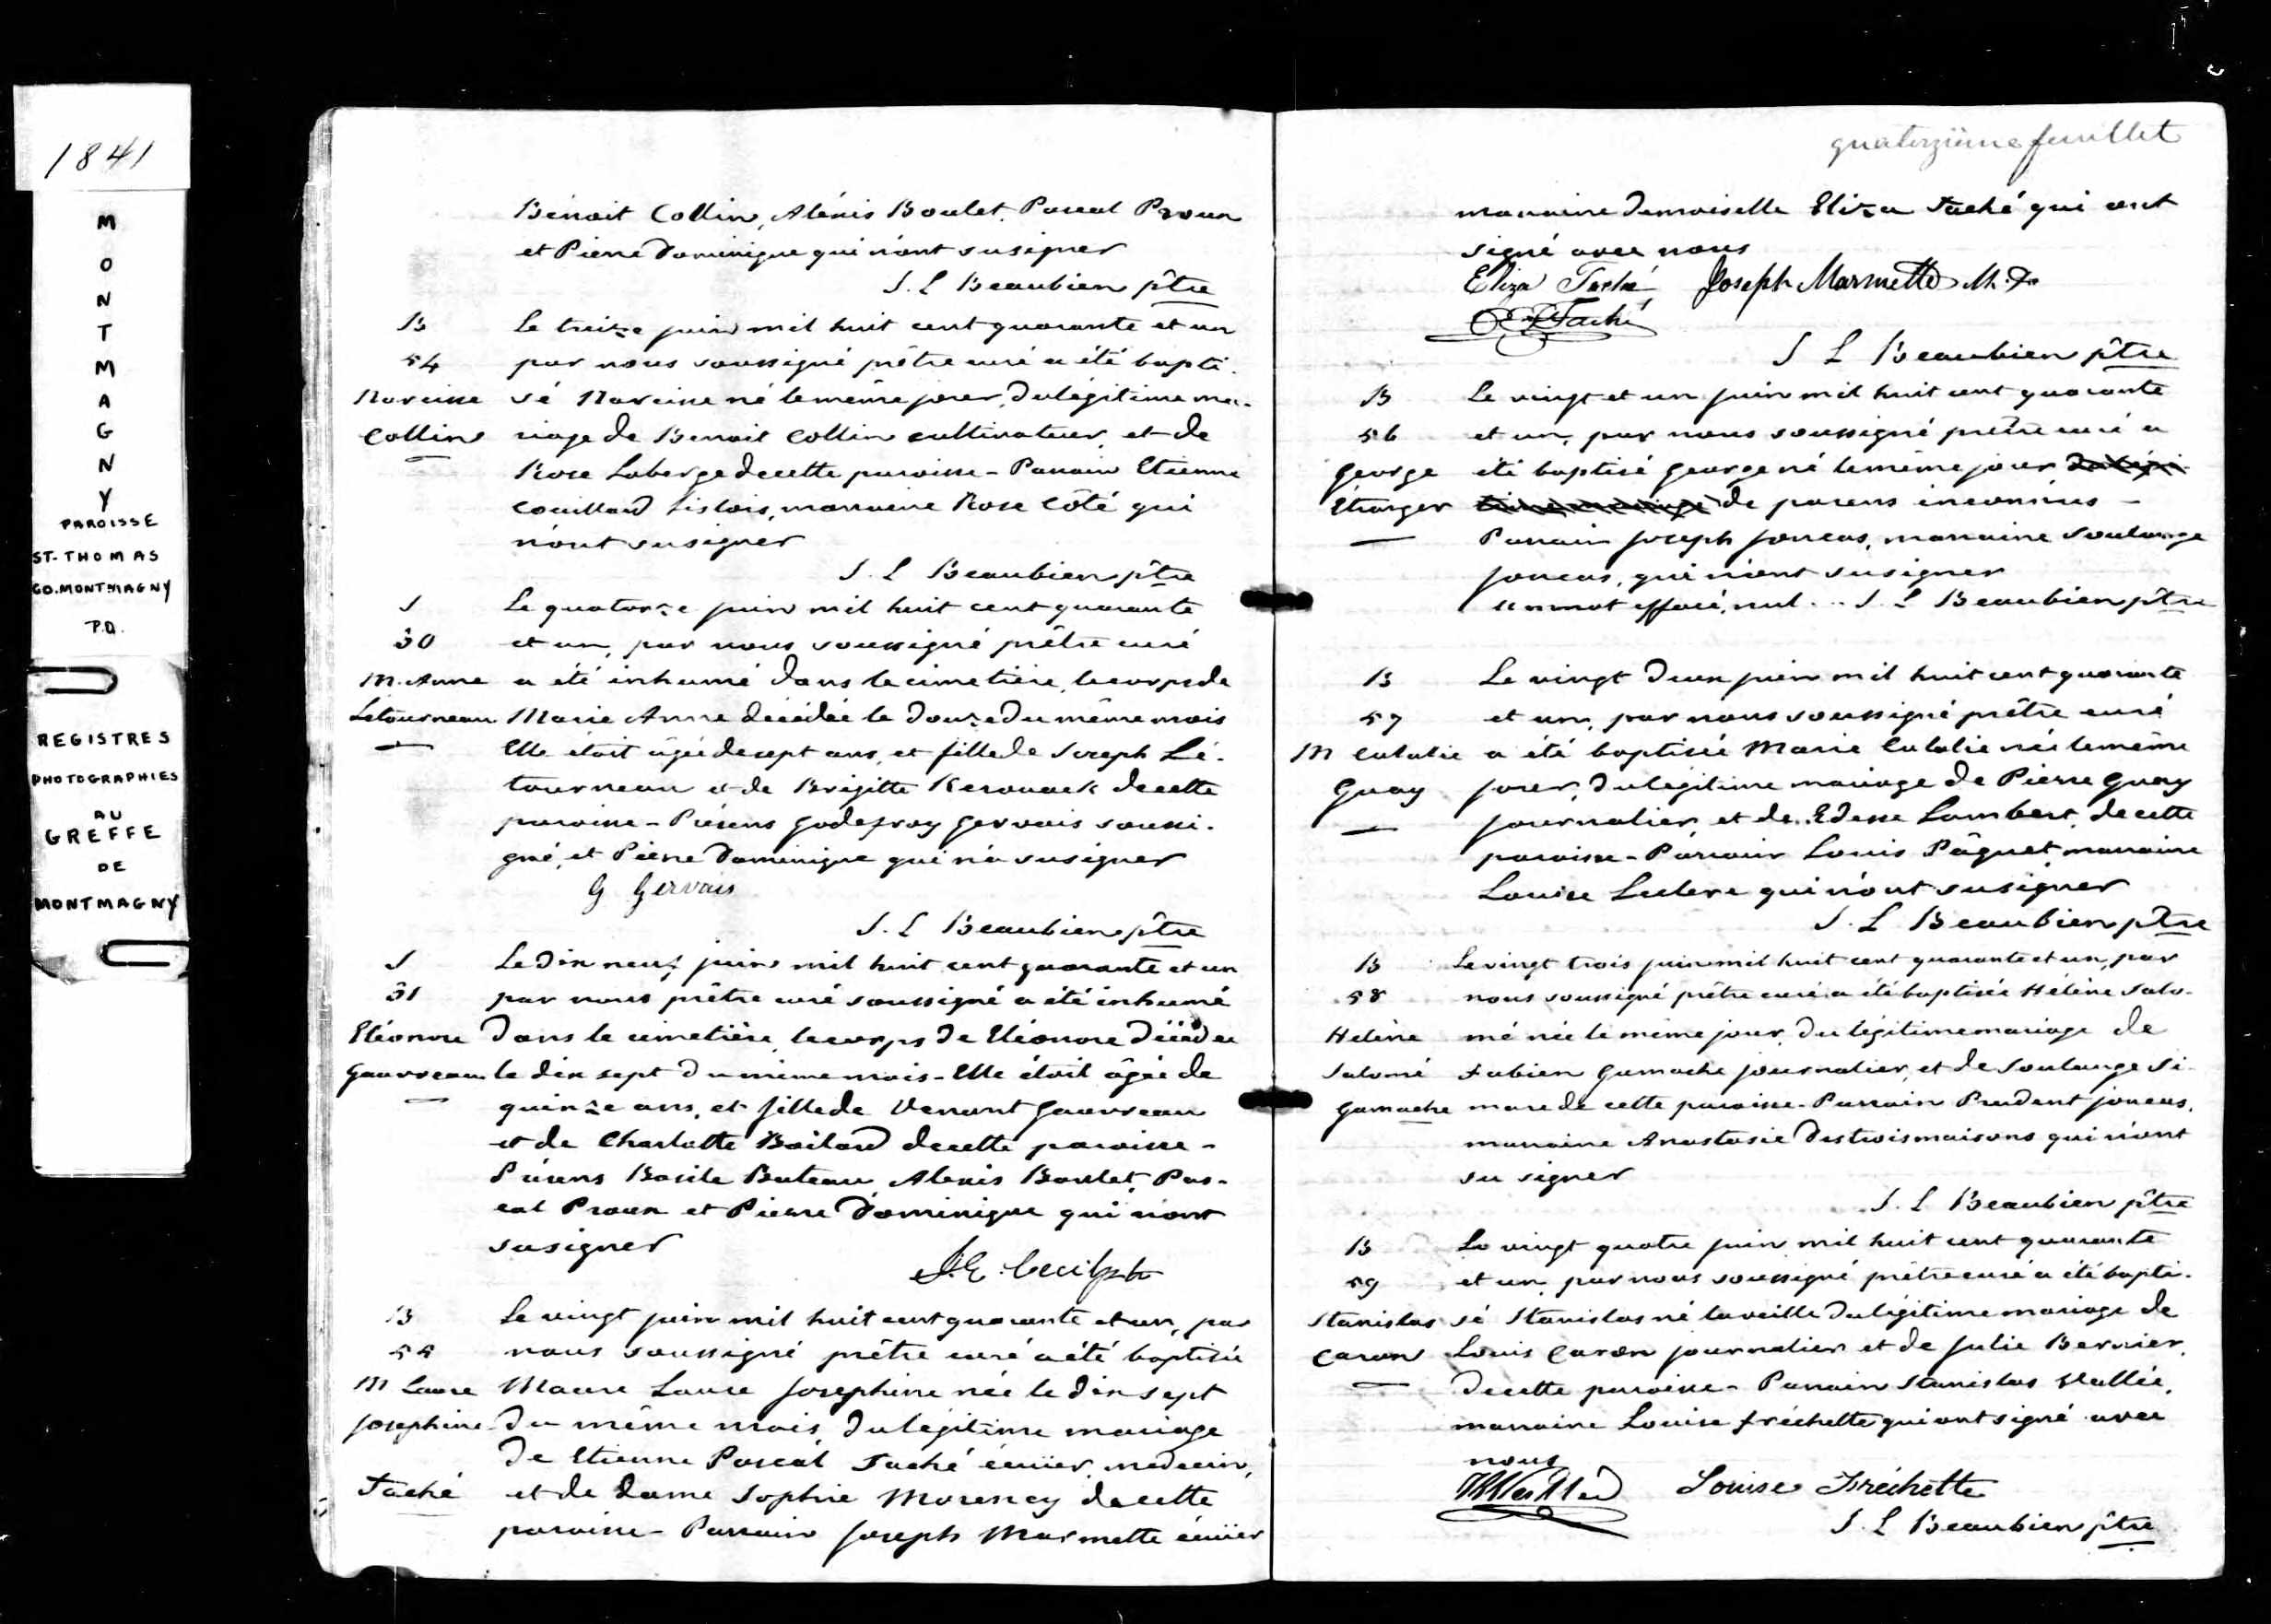 1841
MONTMAGNY
PAROISSE
ST-THOMAS
CO. MONTMAGNY
P.Q.
REGISTRES
PHOTOGRAPHIES
AU
GREFFE
DE
MONTMAGNY
Bénoit Collin, Aléxis Boulet, Pascal Proux
et Pierre Dominique qui n'ont su signer
S. L Beaubien ptre
B Le treize juin mil huit cent quarante et un
54 par nous soussigné prêtre curé a été bapti-
Narcisse sé Narcisse né le même jour, du légitime ma-
Collin riage de Benoit Collin cultivateur et de
Rose Laberge de cette paroisse - Parrain Etienne
Couillard Lislois, marraine Rose Côté qui
n'ont su signer
S. L Beaubien ptre
S Le quatorze juin mil huit cent quarante
30 et un, par nous soussigné prêtre curé
M. Anne a été inhumé dans le cimetière, le corps de
Letourneau Marie Anne décédée le douze du même mois
Elle étoit âgée de sept ans, et fille de Joseph Lé-
tourneau et de Brigitte Kerouack de cette
paroisse - Présens Godefroy Gervais soussi-
gné, et Pierre Dominique qui n'a su signer
G Gervais
S. L Beaubien ptre
S Le dix neuf juin mil huit cent quarante et un
31 par nous prêtre curé soussigné a été inhumé
Eléonore dans le cimetière, le corps de Eléonore décédée
Gauvreau le dix sept du même mois - Elle étoit âgée de
quinze ans, et fille de Venant Gauvreau
et de Charlotte Boilard de cette paroisse -
Présens Basile Buteau, Alexis Boulet, Pas-
cal Proux et Pierre Dominique qui n'ont
su signer
B Le vingt juin mil huit cent quarante et un, par
55 nous soussigné prêtre curé a été baptisée
M Laure Marie Laure Josephine née le dix sept
Josephine du même mois, du légitime mariage
de Etienne Pascal Taché écuier, medecin,
Taché et de Dame Sophie Morency de cette
paroisse - Parrain Joseph Marmette écuier
quatorzième feuillet
marraine Demoiselle Eliza Taché qui ont
signé avec nous
Eliza Taché Joseph Marmette M.D.
E P Taché
S L Beaubien ptre
B Le vingt et un juin mil huit cent quarante
56 et un, par nous soussigné prêtre curé a
George été baptisé George né le même jour du légi-
Etranger time mariage de parens inconnus -
Parrain Joseph Joncas, marraine Soulange
Joncas, qui n'ont su signer
un mot effacé, nul... S. L Beaubien ptre
B Le vingt deux juin mil huit cent quarante
57 et un, par nous soussigné prêtre curé
M Eulalie a été baptisée Marie Eulalie née le même
Guay jour, du légitime mariage de Pierre Guay
journalier et de Edesse Lambert, de cette
paroisse - Parrain Louis Pâquet, marraine
Louise Leclerc qui n'ont su signer
S. L Beaubien ptre
B Le vingt trois juin mil huit cent quarante et un, par
58 nous soussigné prêtre curé a été baptisée Hélène Salo-
Helène mé née le même jour, du légitime mariage de
Salomé Fabien Gamache journalier, et de Soulange Si-
Gamache mare de cette paroisse - Parrain Prudent Joncas,
marraine Anastasie Destroismaisons qui n'ont
su signer
S. L Beaubien ptre
B Le vingt quatre juin mil huit cent quarante
59 et un, par nous soussigné prêtre curé a été bapti-
Stanislas sé Stanislas né la veille du légitime mariage de
Caron Louis Caron journalier et de Julie Bernier,
de cette paroisse - Parrain Stanislas Vallée,
marraine Louise Fréchette qui ont signé avec
nous
Louise Fréchette
S. L Beaubien ptre